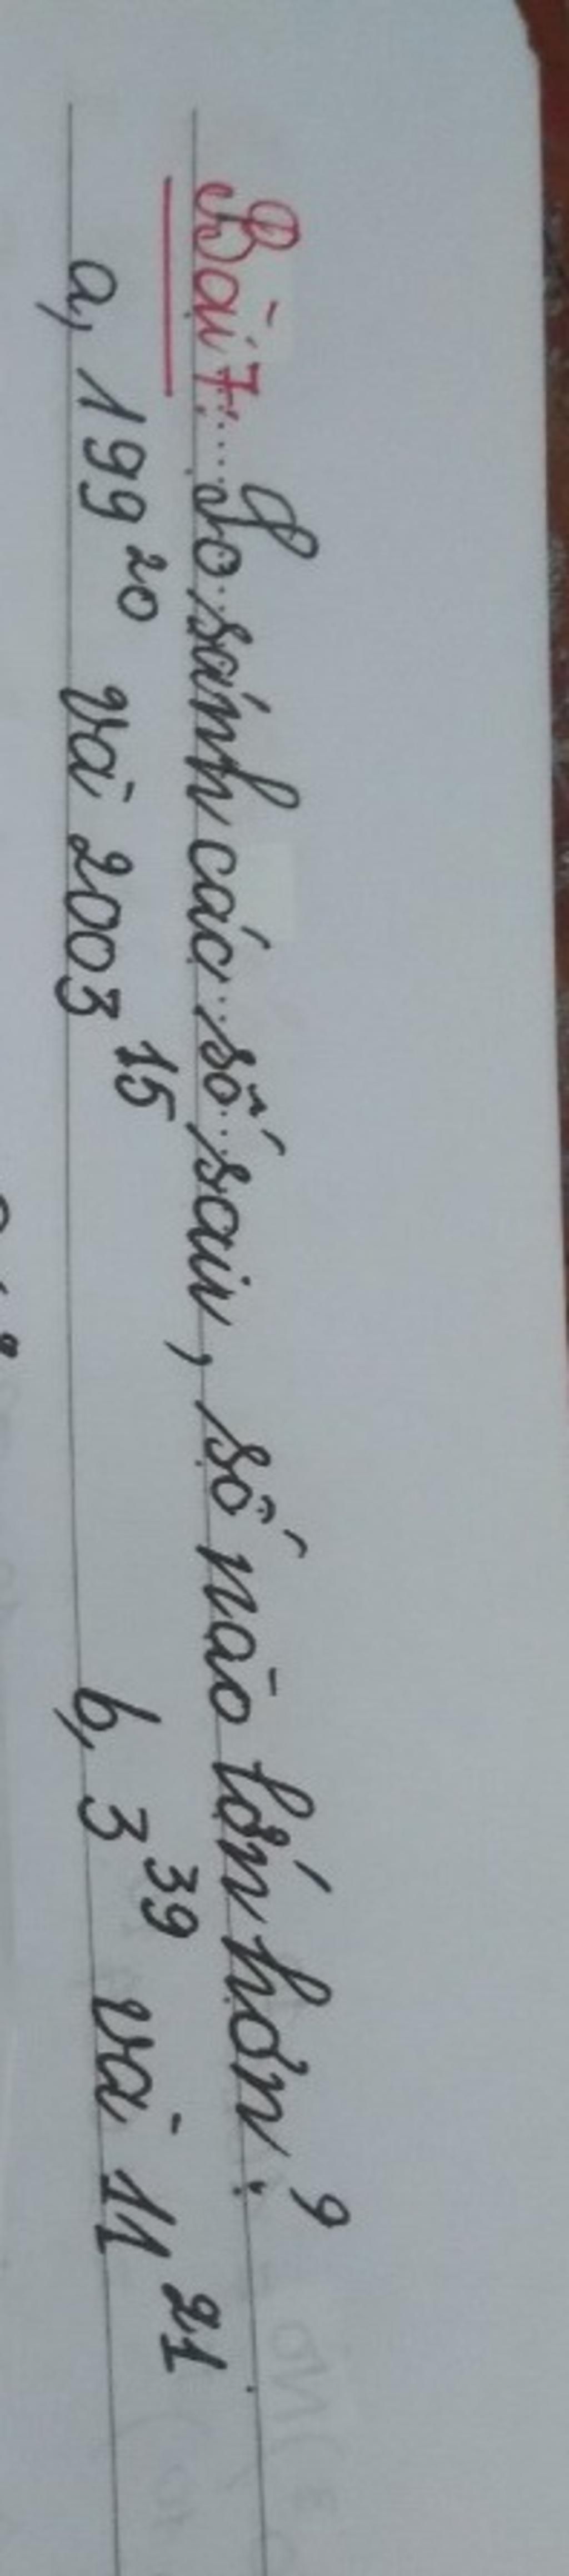 Bài 7: So sánh các số sau, số nào lớn hơn?
a, 199²⁰ và 2003¹⁵ b, 3³⁹ và 11²¹